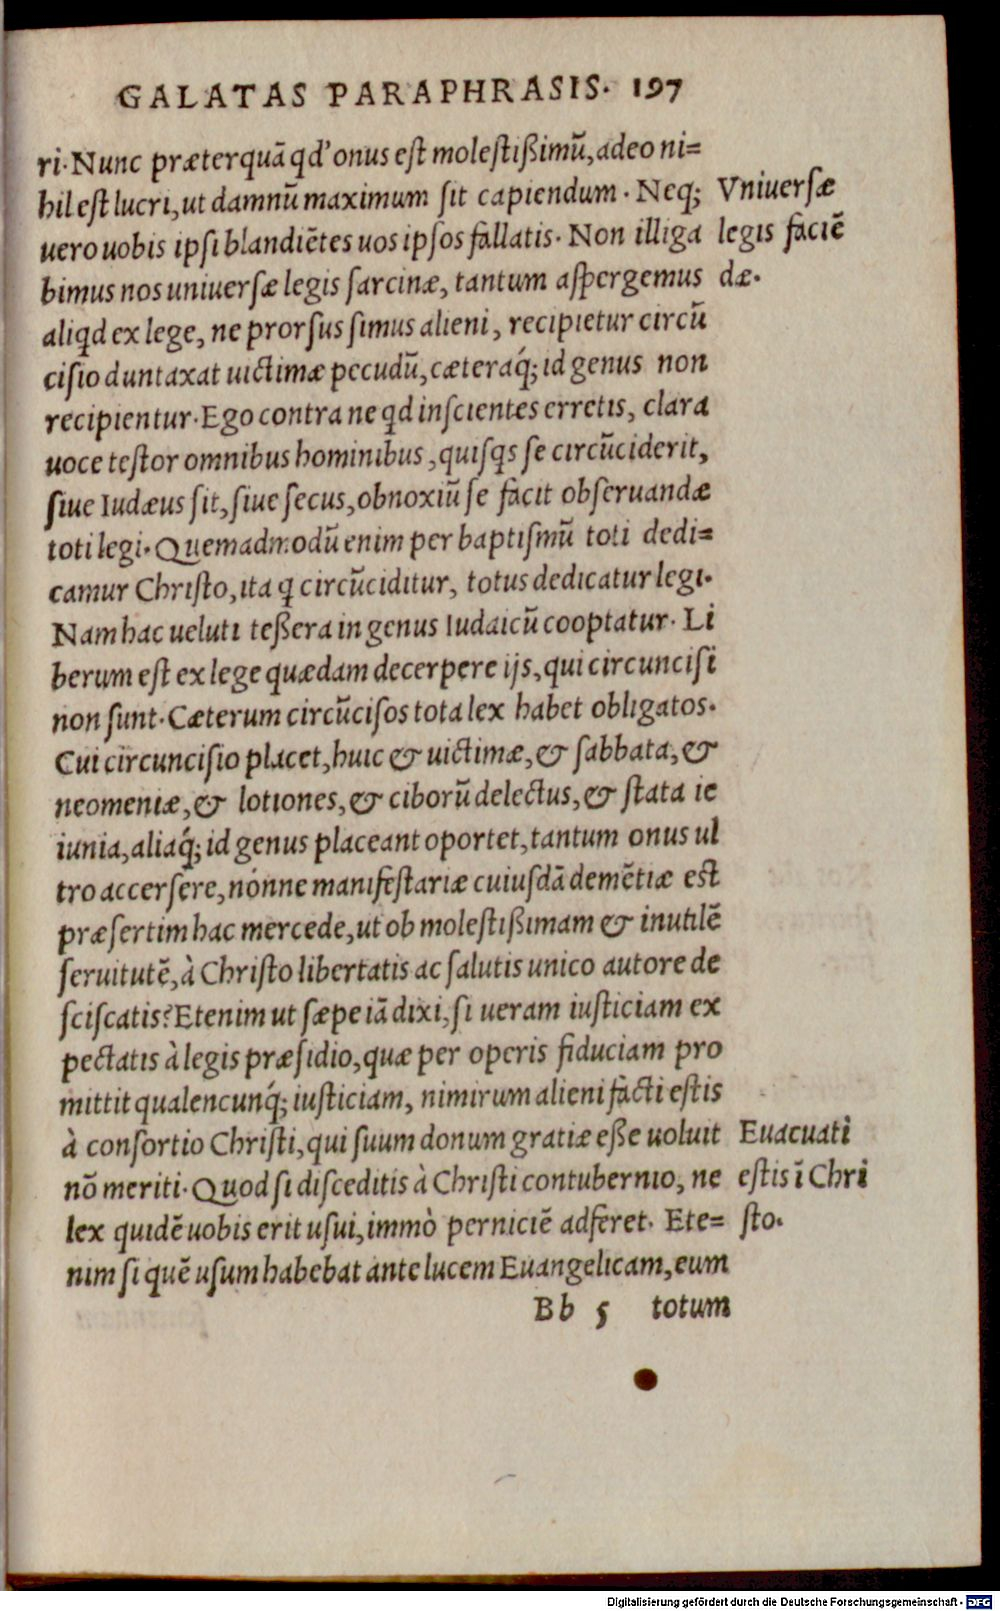 GALATAS PARAPHRASIS. 197
ri. Nunc præterquã qd' onus est molestißimũ, adeo ni=
hil est lucri, ut damnũ maximum sit capiendum. Neq; Vniuersæ
uero uobis ipsi blandiẽtes uos ipsos fallatis. Non illiga legis faciẽ
bimus nos uniuersæ legis sarcinæ, tantum aspergemus dæ.
aliqd ex lege, ne prorsus simus alieni, recipietur circũ
cisio duntaxat uictimæ pecudũ, cæteraq́; id genus non
recipientur. Ego contra ne qd inscientes erretis, clara
uoce testor omnibus hominibus, quisqs se circũciderit,
siue Iudæus sit, siue secus, obnoxiũ se facit obseruandæ
toti legi. Quemadmodũ enim per baptismũ toti dedi=
camur Christo, ita q circũciditur, totus dedicatur legi.
Nam hac ueluti teßera in genus Iudaicũ cooptatur. Li
berum est ex lege quædam decerpere ijs, qui circuncisi
non sunt. Cæterum circũcisos tota lex habet obligatos.
Cui circuncisio placet, huic & uictimæ, & sabbata, &
neomeniæ, & lotiones, & ciborũ delectus, & stata ie
iunia, aliaq́; id genus placeant oportet, tantum onus ul
tro accersere, nónne manifestariæ cuiusdã demẽtiæ est
præsertim hac mercede, ut ob molestißimam & inutilẽ
seruitutẽ, à Christo libertatis ac salutis unico autore de
sciscatis? Etenim ut sæpe iã dixi, si ueram iusticiam ex
pectatis à legis præsidio, quæ per operis fiduciam pro
mittit qualencunq́; iusticiam, nimirum alieni facti estis
à consortio Christi, qui suum donum gratiæ eße uoluit Euacuati
nõ meriti. Quod si disceditis à Christi contubernio, ne estis ĩ Chri
lex quidẽ uobis erit usui, immò perniciẽ adferet. Ete= sto.
nim si quẽ usum habebat ante lucem Euangelicam, eum
Bb 5 totum
Digitalisierung gefördert durch die Deutsche Forschungsgemeinschaft - DFG